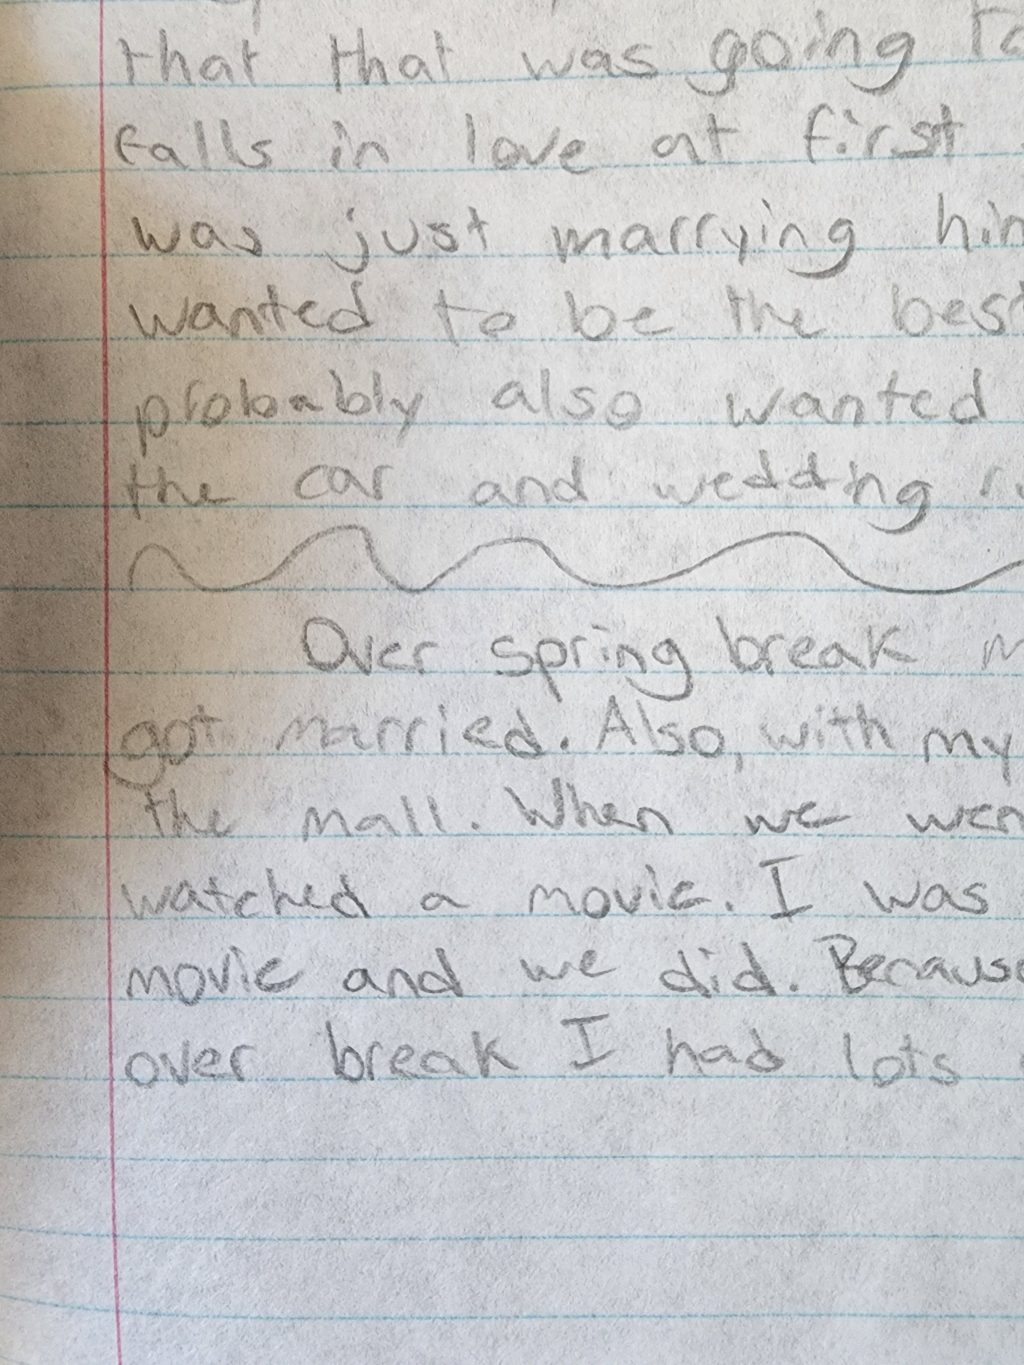 that that was going
falls in love at first
was just marrying
wanted to be the best
probably also wanted
the car and wedding
Over spring break
got married. Also, with my
the mall. When we
watched a movie. I was
movie and we did. Because
over break I had lots